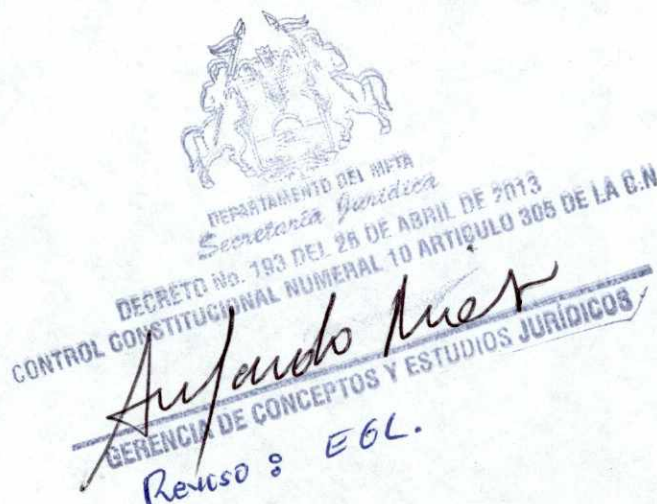 DEPARTAMENTO DEL META
Secretaría Jurídica
DECRETO No. 193 DEL 26 DE ABRIL DE 2013
CONTROL CONSTITUCIONAL NUMERAL 10 ARTICULO 305 DE LA C.N
GERENCIA DE CONCEPTOS Y ESTUDIOS JURÍDICOS
Reviso : EGL.